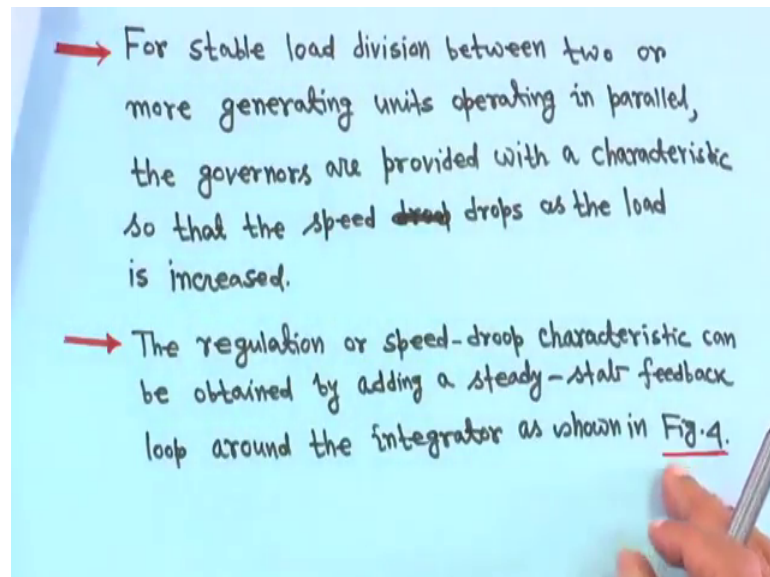 For stable load division between two or
more generating units operating in parallel,
the governors are provided with a characteristic
so that the speed drops as the load
is increased.
The regulation or speed-droop characteristic can
be obtained by adding a steady-stat feedback
loop around the integrator as shown in Fig.4.